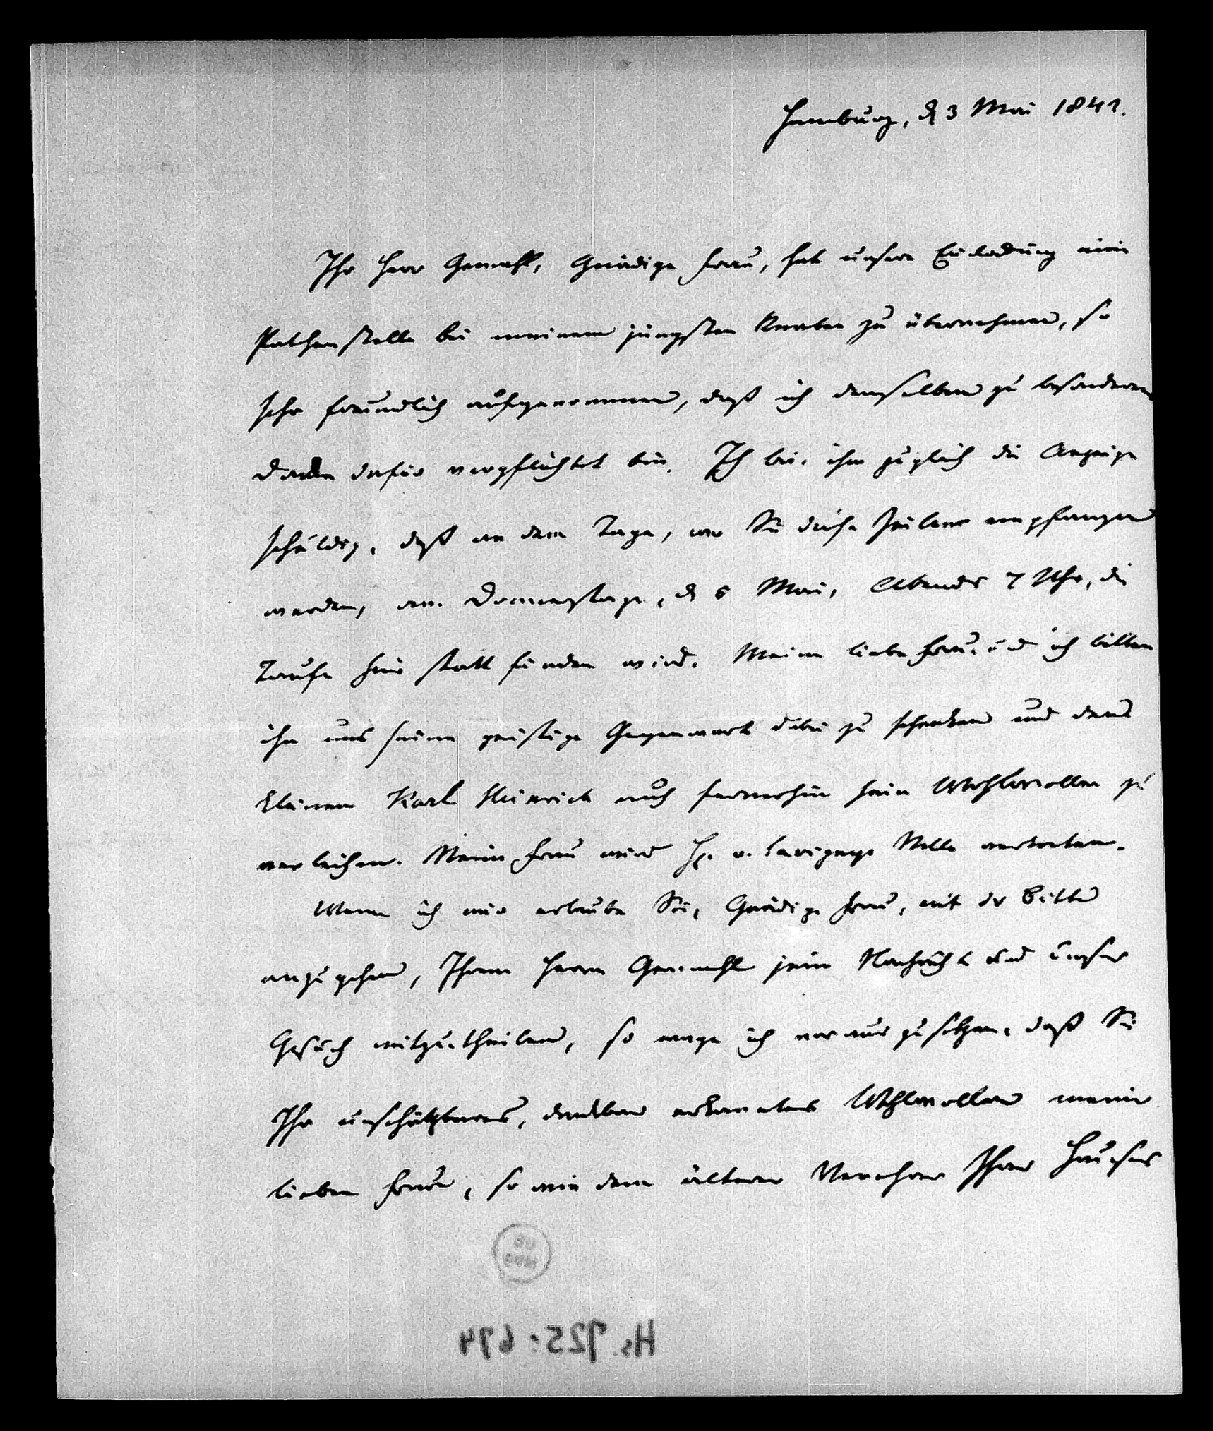 Hamburg, d 3 Mai 1841.
Ihr Herr Gemahl, Gnädige Frau, hat unsere Einladung eine
Pathenstelle bei meinem jüngsten Knaben zu übernehmen, so
sehr freundlich aufgenommen, daß ich demselben zu besonderem
Danke dafür verpflichtet bin. Ich bin ihm zugleich die Anzeige
schuldig, daß an dem Tage, wo Sie diese Zeilen empfangen
werden, am Donnerstage, d 6 Mai, Abends 7 Uhr, die
Taufe hier statt finden wird. Meine liebe Frau und ich bitten
ihn uns seine geistige Gegenwart dabei zu schenken und dem
kleinen Karl Heinrich auch fernerhin sein Wohlwollen zu
verleihen. Meine Frau wird H. v. Stelle vertreten.
Wenn ich mir erlaube Sie, Gnädige Frau, mit der Bitte
anzugehen, Ihrem Herrn Gemahl jene Nachricht und unser
Gesuch mitzutheilen, so wage ich vorauszusetzen, daß Sie
Ihr unschätzbares, dankbar erkanntes Wohlwollen meiner
lieben Frau, so wie dem älteren Verehrer Ihres Hauses
Hs. 725: 674